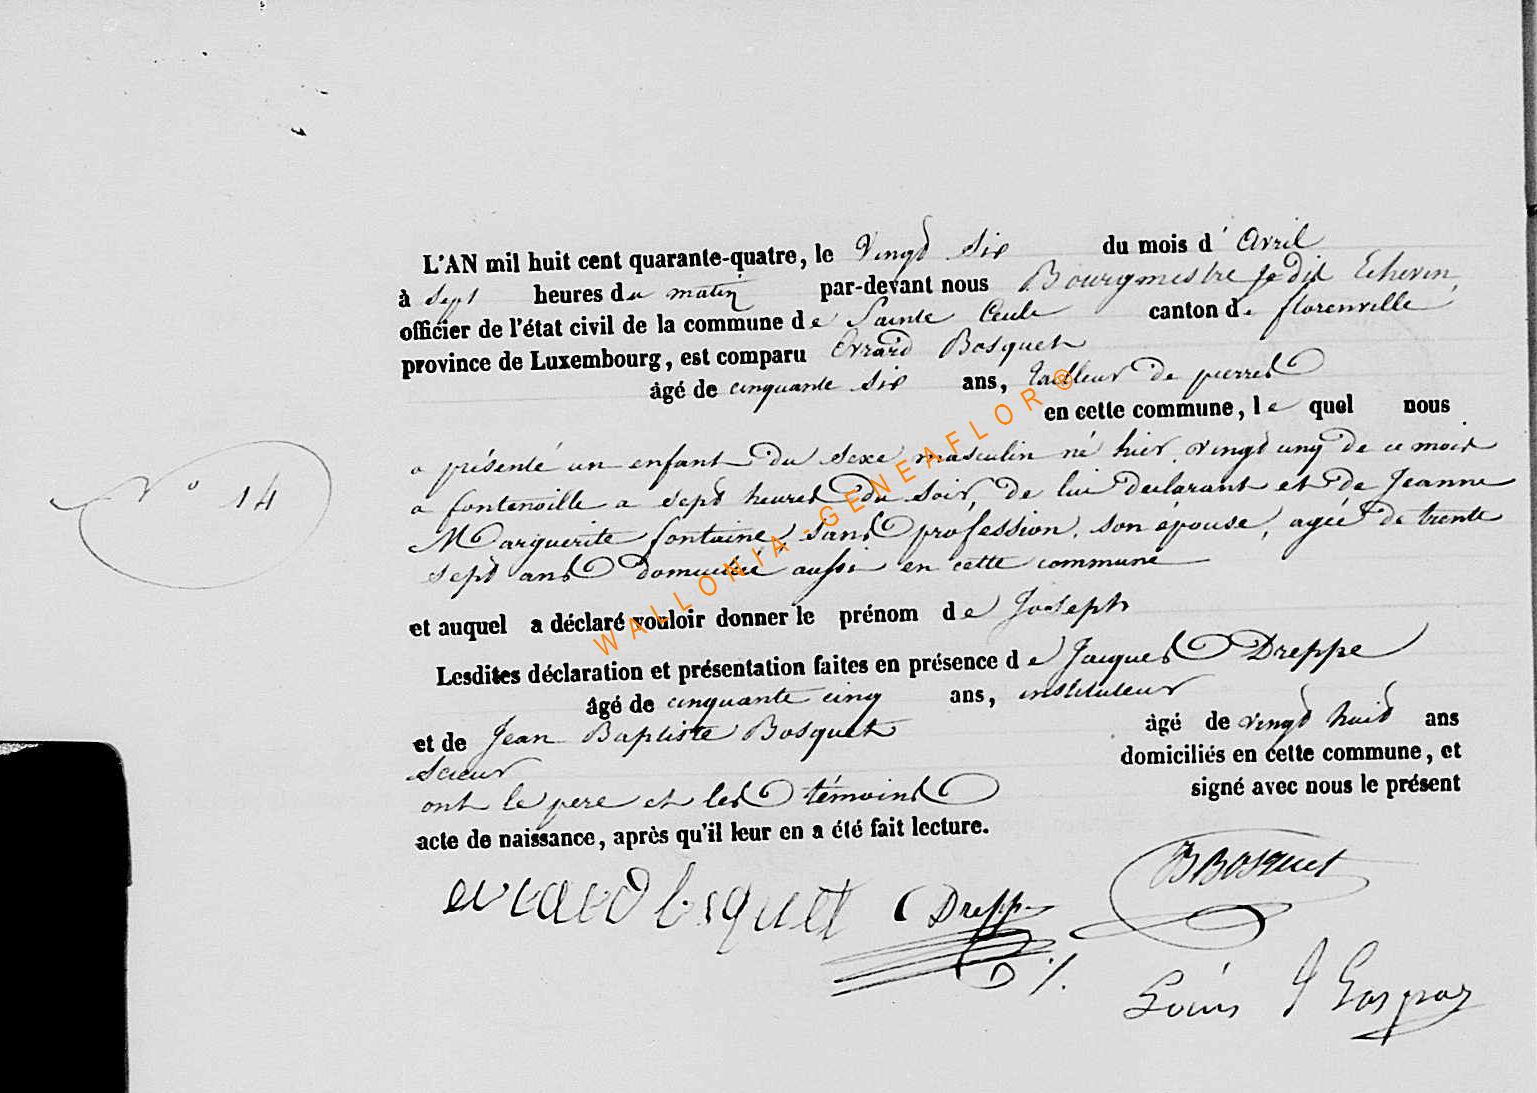 L'AN mil huit cent quarante-quatre, le vingt six du mois d' Avril
à sept heures du matin par-devant nous Bourgmestre Echevin
officier de l'état civil de la commune de Sainte Cecile canton de florenville
province de Luxembourg, est comparu Evrard Bosquet
âgé de cinquante six ans, tailleur de pierres
en cette commune, le quel nous
N° 14
a présenté un enfant du sexe masculin né hier vingt cinq de ce mois
a fontenoille a sept heures du soir, de lui declarant et de Jeanne
Marguerite fontaine, sans profession, son épouse, agée de trente
sept ans domicilié aussi en cette commune
et auquel a déclaré vouloir donner le prénom de Joseph
Lesdites déclaration et présentation faites en présence de Jacques Dreppe
âgé de cinquante cinq ans, instituteur
et de Jean Baptiste Bosquet âgé de vingt huit ans
scieur domiciliés en cette commune, et
ont le pere et les témoins signé avec nous le présent
acte de naissance, après qu'il leur en a été fait lecture.
evrard bosquet Dreppe BBosquet
Louis J Gaspar
WALLONIA-GENEAFLOR®